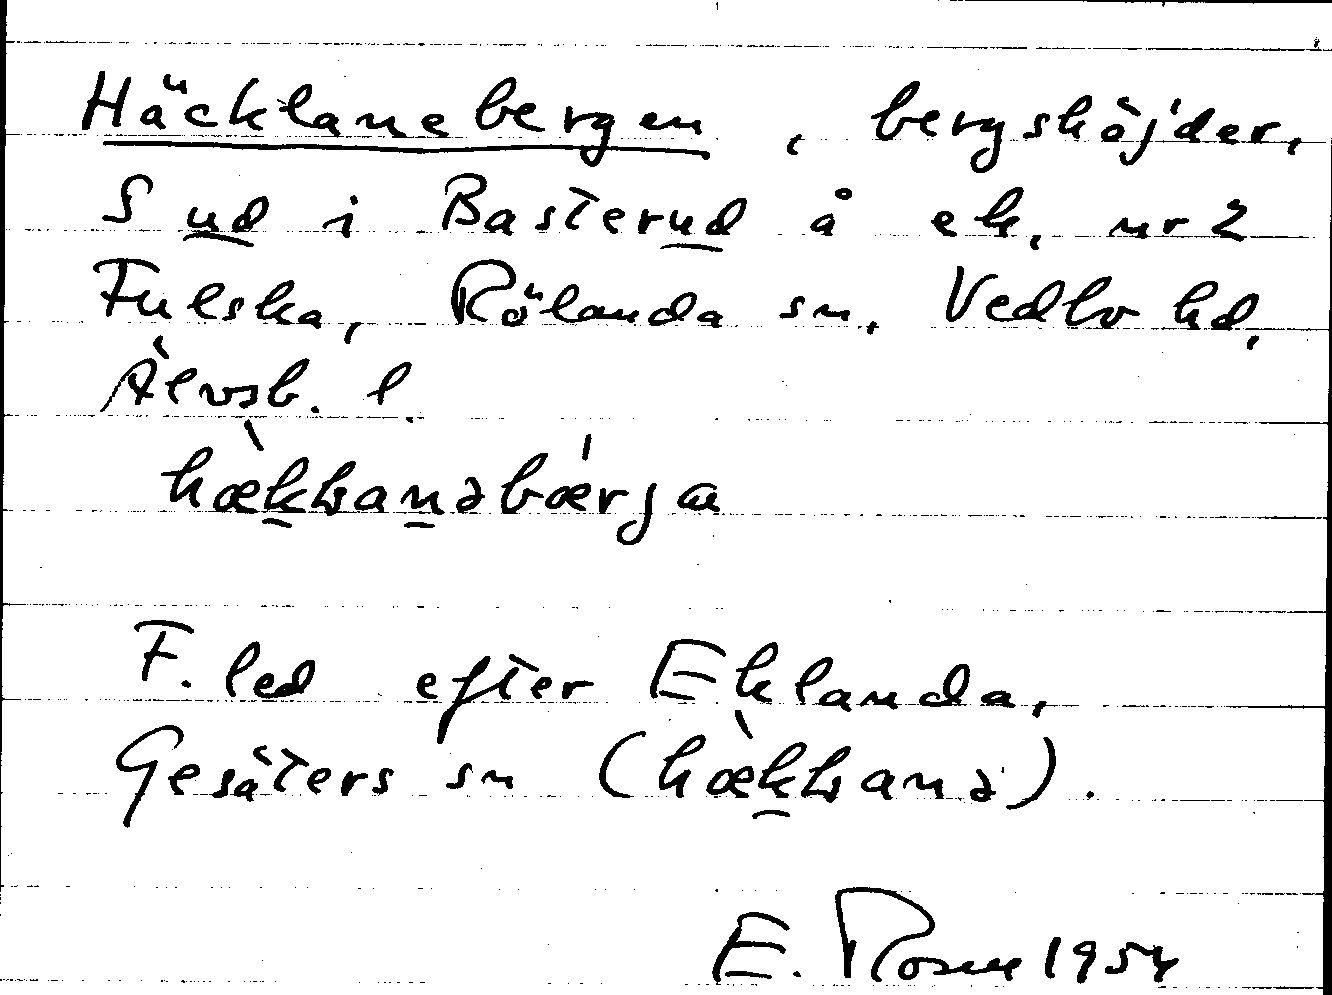 Häcklanebergen, bergshöjder,
S ud i Basterud å ek. nr 2
Fulska, Rölanda sn, Vedbo hd,
Älvsb. l.
F. led efter Eklanda,
Gesäters sn
E. Rosen 1954